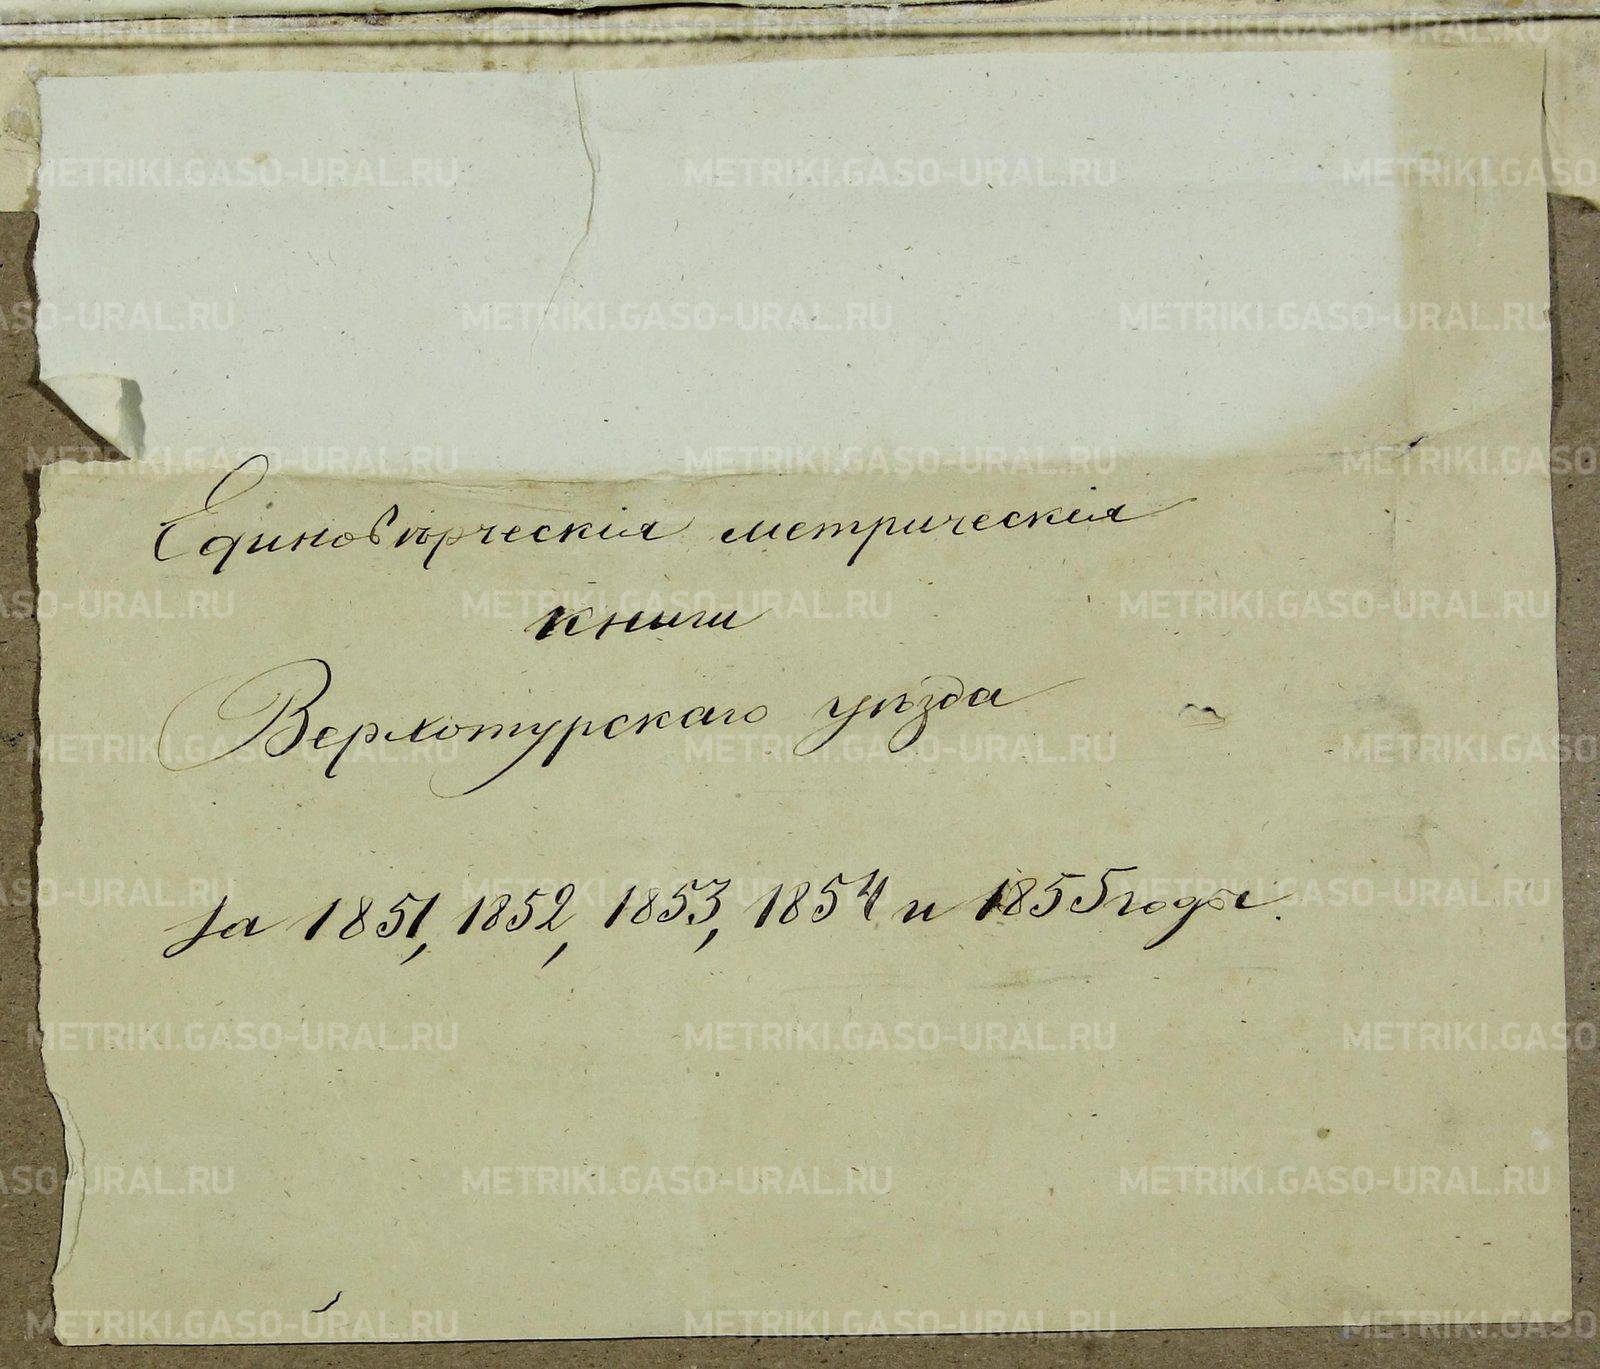 Единовѣрческія метрическія
книги
Верхотурскаго уѣзда
за 1851, 1852, 1853, 1854 и 1855 годы.
METRIKI.GASO-URAL.RU